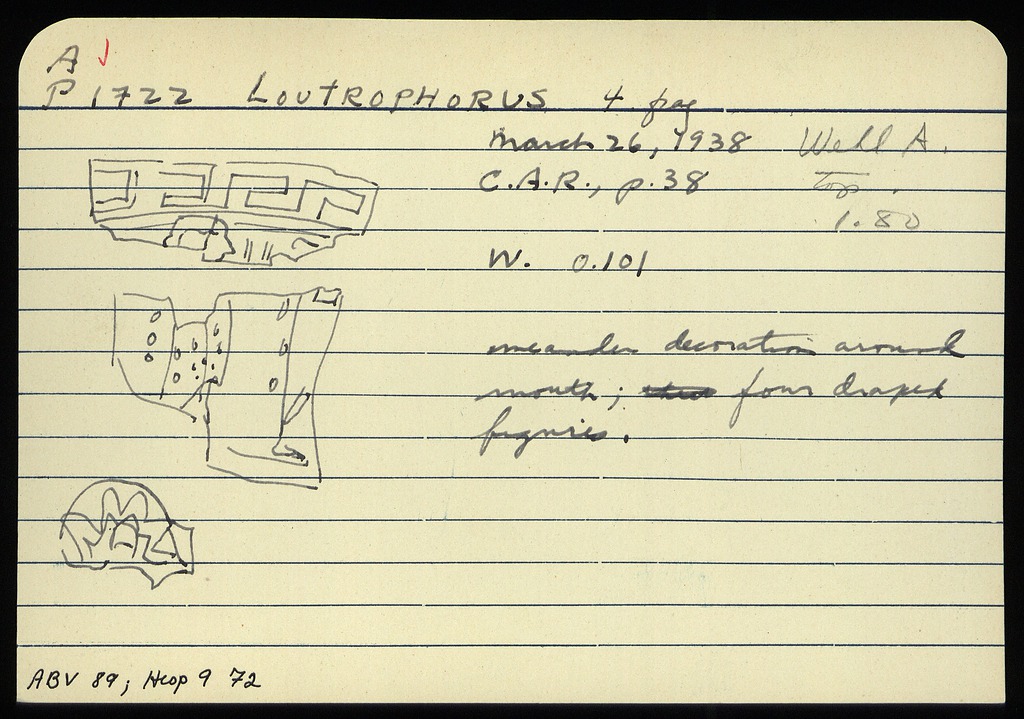 A
P 1722 LOUTROPHORUS 4 frag
March 26, 1938 Well A.
C.A.R., p. 38 Top.
1.80
W. 0.101
meander decoration around
mouth; four draped
figures.
ABV 89; Hesp 9 72